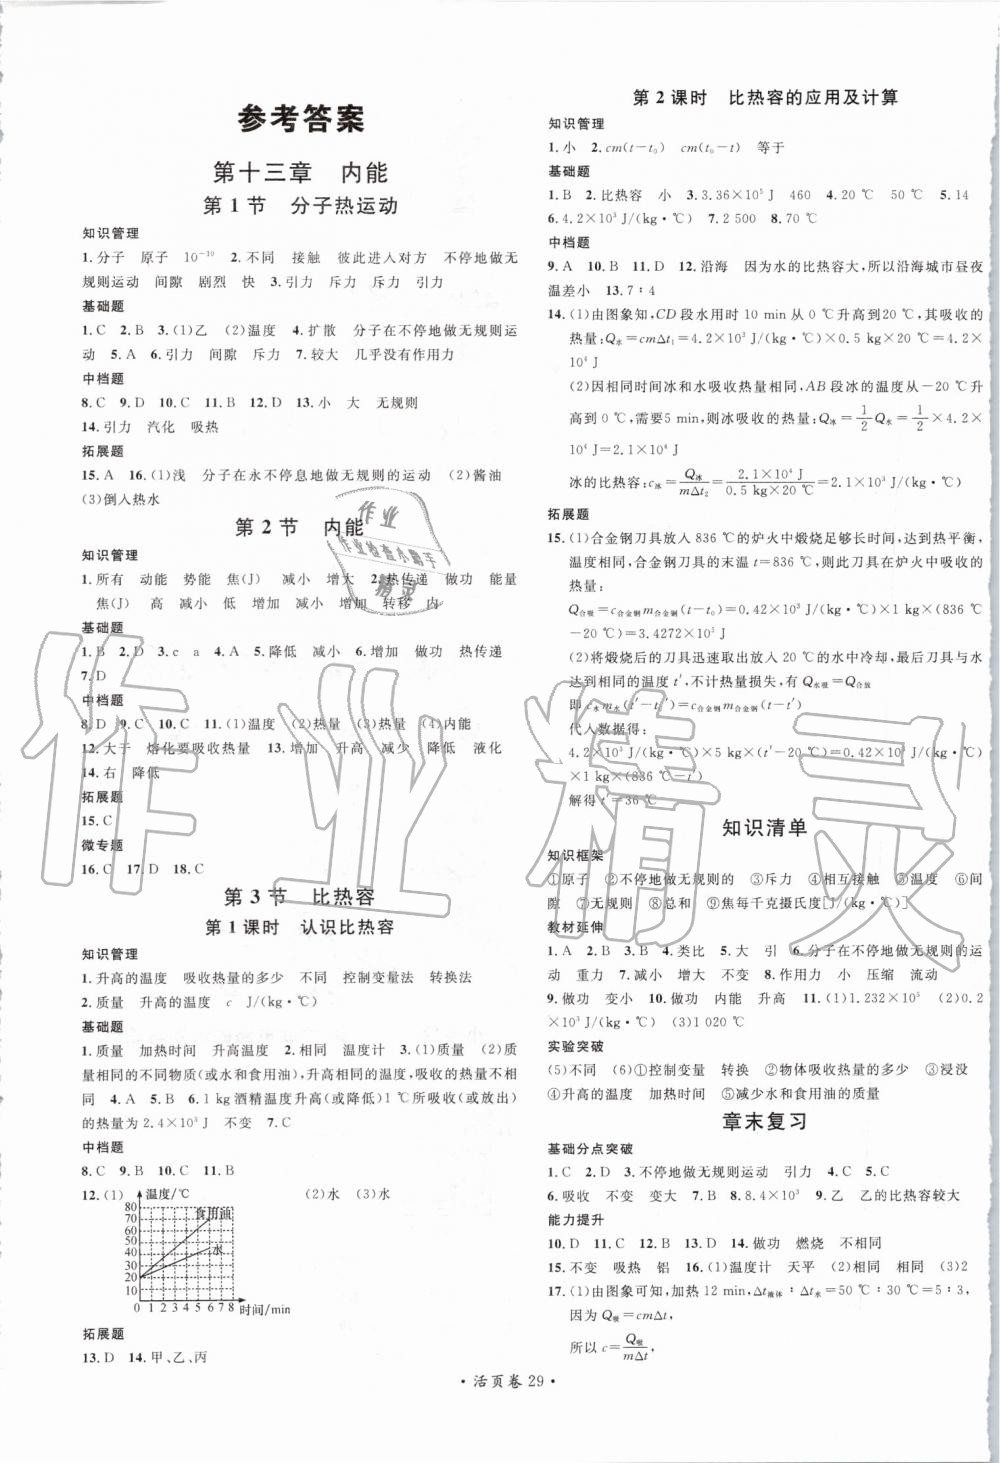 参考答案
第十三章　内能
第1节　分子热运动
知识管理
1.分子　原子　10⁻¹⁰　2.不同　接触　彼此进入对方　不停地做无
规则运动　间隙　剧烈　快　3.引力　斥力　斥力　引力
基础题
1.C　2.B　3.(1)乙　(2)温度　4.扩散　分子在不停地做无规则运
动　5.A　6.引力　间隙　斥力　7.较大　几乎没有作用力
中档题
8.C　9.D　10.C　11.B　12.D　13.小　大　无规则
14.引力　汽化　吸热
拓展题
15.A　16.(1)浅　分子在永不停息地做无规则的运动　(2)酱油
(3)倒入热水
第2节　内能
知识管理
1.所有　动能　势能　焦(J)　减小　增大　2.热传递　做功　能量
焦(J)　高　减小　低　增加　减小　增加　转移　内
基础题
1.B　2.D　3.c　a　4.A　5.降低　减小　6.增加　做功　热传递
7.D
中档题
8.D　9.C　10.C　11.(1)温度　(2)热量　(3)热量　(4)内能
12.大于　熔化要吸收热量　13.增加　升高　减少　降低　液化
14.右　降低
拓展题
15.C
微专题
16.C　17.D　18.C
第3节　比热容
第1课时　认识比热容
知识管理
1.升高的温度　吸收热量的多少　不同　控制变量法　转换法
2.质量　升高的温度　c　J/(kg·℃)
基础题
1.质量　加热时间　升高温度　2.相同　温度计　3.(1)质量　(2)质
量相同的不同物质(或水和食用油),升高相同温度,吸收的热量不相
同　4.A　5.B　6.1 kg酒精温度升高(或降低)1 ℃所吸收(或放出)
的热量为2.4×10³ J　不变　7.C
中档题
8.C　9.B　10.C　11.B
12.(1)　(2)水　(3)水
温度/℃
80
70
60
50
40
30
20
10
食用油
水
0 1 2 3 4 5 6 7 8 时间/min
拓展题
13.D　14.甲、乙、丙
第2课时　比热容的应用及计算
知识管理
1.小　2.cm(t-t₀)　cm(t₀-t)　等于
基础题
1.B　2.比热容　小　3.3.36×10⁵ J　460　4.20 ℃　50 ℃　5.14
6.4.2×10³ J/(kg·℃)　7.2 500　8.70 ℃
中档题
9.A　10.B　11.D　12.沿海　因为水的比热容大,所以沿海城市昼夜
温差小　13.7∶4
14.(1)由图象知,CD段水用时10 min从0 ℃升高到20 ℃,其吸收的
热量:Q水=cmΔt₁=4.2×10³ J/(kg·℃)×0.5 kg×20 ℃=4.2×
10⁴ J
(2)因相同时间冰和水吸收热量相同,AB段冰的温度从-20 ℃升
高到0 ℃,需要5 min,则冰吸收的热量:Q冰=1/2Q水=1/2×4.2×
10⁴ J=2.1×10⁴ J
冰的比热容:c冰=Q冰/mΔt₂=2.1×10⁴ J/0.5 kg×20 ℃=2.1×10³ J/(kg·℃)
拓展题
15.(1)合金钢刀具放入836 ℃的炉火中煅烧足够长时间,达到热平衡,
温度相同,合金钢刀具的末温t=836 ℃,则此刀具在炉火中吸收的
热量:
Q合吸=c合金钢m合金钢(t-t₀)=0.42×10³ J/(kg·℃)×1 kg×(836 ℃
-20 ℃)=3.4272×10⁵ J
(2)将煅烧后的刀具迅速取出放入20 ℃的水中冷却,最后刀具与水
达到相同的温度t′,不计热量损失,有Q水吸=Q合放
即c水m水(t′-t₀)=c合金钢m合金钢(t-t′)
代入数据得:
4.2×10³ J/(kg·℃)×5 kg×(t′-20 ℃)=0.42×10³ J/(kg·℃)
×1 kg×(836 ℃-t′)
解得t′=36 ℃
知识清单
知识框架
①原子　②不停地做无规则的　③斥力　④相互接触　⑤温度　⑥间
隙　⑦无规则　⑧总和　⑨焦每千克摄氏度[J/(kg·℃)]
教材延伸
1.A　2.B　3.B　4.类比　5.大　引　6.分子在不停地做无规则的运
动　重力　7.减小　增大　不变　8.作用力　小　压缩　流动
9.做功　变小　10.做功　内能　升高　11.(1)1.232×10⁵　(2)0.2
×10³ J/(kg·℃)　(3)1 020 ℃
实验突破
(5)不同　(6)①控制变量　转换　②物体吸收热量的多少　③浸没
④升高的温度　加热时间　⑤减少水和食用油的质量
章末复习
基础分点突破
1.C　2.D　3.不停地做无规则运动　引力　4.C　5.C
6.吸收　不变　变大　7.B　8.8.4×10³　9.乙　乙的比热容较大
能力提升
10.D　11.C　12.C　13.D　14.做功　燃烧　不相同
15.不变　吸热　铝　16.(1)温度计　天平　(2)相同　相同　(3)2
17.(1)由图象可知,加热12 min,Δt液体∶Δt水=50 ℃∶30 ℃=5∶3,
因为Q吸=cmΔt,
所以c=Q吸/mΔt,
·活页卷 29·
作业
作业检查小助手
精灵
作业精灵